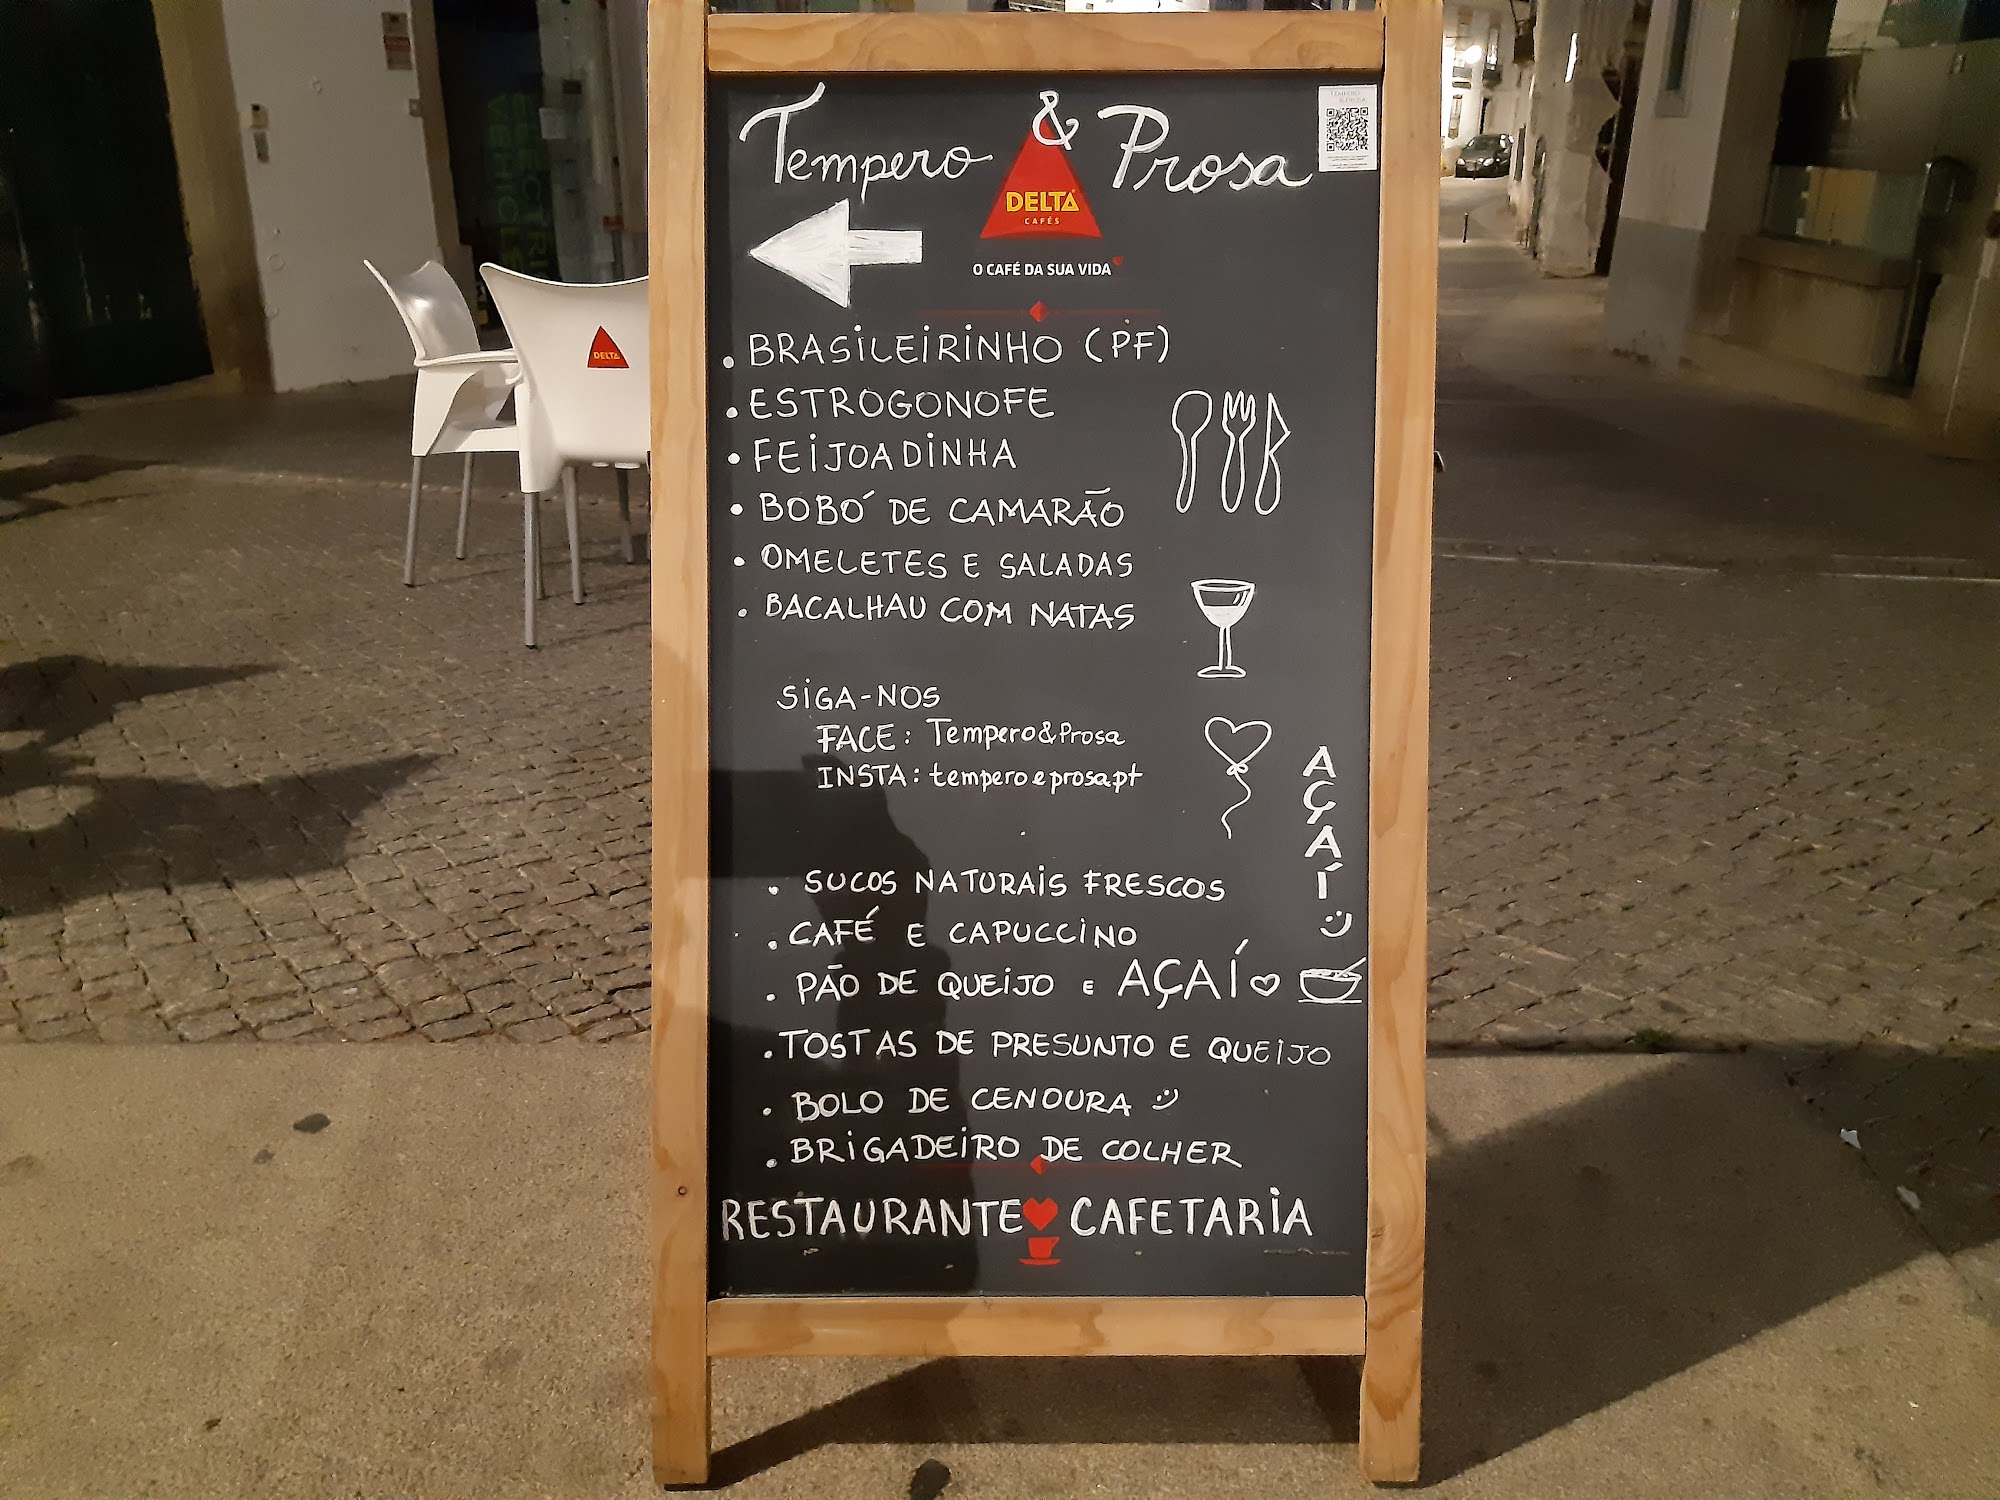 Tempero & Prosa
TEMPERO
& PROSA
DELTA
CAFÉS
O CAFÉ DA SUA VIDA
DELTA
. BRASILEIRINHO (PF)
. ESTROGONOFE
. FEIJOADINHA
. BOBÓ DE CAMARÃO
. OMELETES E SALADAS
. BACALHAU COM NATAS
SIGA-NOS
FACE: Tempero&Prosa
INSTA: temperoeprosa.pt
AÇAÍ
. SUCOS NATURAIS FRESCOS
. CAFÉ E CAPUCCINO
. PÃO DE QUEIJO E AÇAÍ
. TOSTAS DE PRESUNTO E QUEIJO
. BOLO DE CENOURA
. BRIGADEIRO DE COLHER
RESTAURANTE CAFETARIA
ELECTRIC
VEHICLES